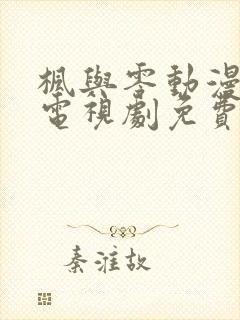 楓與零動漫
電視劇免費
秦淮故